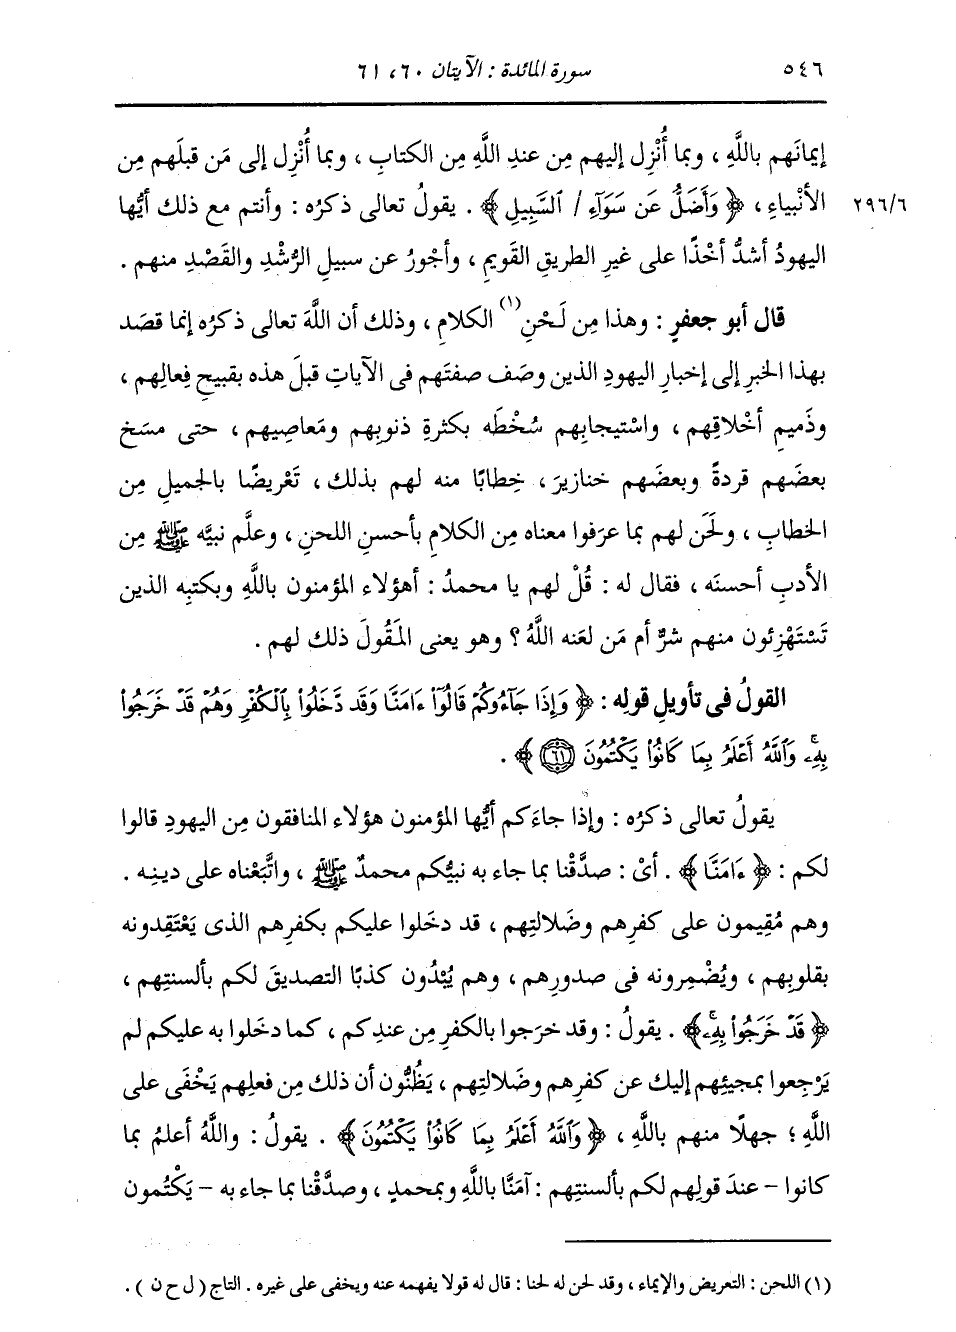 ٥٤٦ سورة المائدة : الآيتان ٦٠، ٦١
إيمانَهم باللَّهِ ، وبما أُنْزِل إليهم مِن عندِ اللَّهِ مِن الكتابِ ، وبما أُنْزِل إلى مَن قبلَهم مِن
٢٩٦/٦ الأنْبياءِ ، ﴿ وَأَضَلُّ عَن سَوَآءِ / ٱلسَّبِيلِ ﴾ . يقولُ تعالى ذكرُه : وأنتم مع ذلك أيُّها
اليهودُ أشدُّ أخْذًا على غيرِ الطريقِ القَويمِ ، وأجْورُ عن سبيلِ الرُّشْدِ والقَصْدِ منهم .
قال أبو جعفرٍ : وهذا مِن لَحْنِ(١) الكلامِ ، وذلك أن اللَّهَ تعالى ذكرُه إنما قصَد
بهذا الخبرِ إلى إخبارِ اليهودِ الذين وصَف صفتَهم فى الآياتِ قبلَ هذه بقبيحِ فِعالِهم ،
وذَميمِ أخْلاقِهم ، واسْتيجابِهم سُخْطَه بكثرةِ ذنوبِهم ومَعاصِيهم ، حتى مسَخ
بعضَهم قردةً وبعضَهم خنازيرَ ، خِطابًا منه لهم بذلك ، تَعْريضًا بالجميلِ مِن
الخطابِ ، ولَحَن لهم بما عرَفوا معناه مِن الكلامِ بأحسنِ اللحنِ ، وعلَّم نبيَّه ﷺ مِن
الأدبِ أحسنَه ، فقال له : قُلْ لهم يا محمدُ : أهؤلاء المؤمنون باللَّهِ وبكتبِه الذين
تَسْتَهْزِئون منهم شرٌّ أم مَن لعَنه اللَّهُ ؟ وهو يعنى المَقُولَ ذلك لهم .
القولُ فى تأويلِ قولِه : ﴿ وَإِذَا جَآءُوكُمْ قَالُوٓا۟ ءَامَنَّا وَقَد دَّخَلُوا۟ بِٱلْكُفْرِ وَهُمْ قَدْ خَرَجُوا۟
بِهِۦ وَٱللَّهُ أَعْلَمُ بِمَا كَانُوا۟ يَكْتُمُونَ ﴿٦١﴾ ﴾ .
يقولُ تعالى ذكرُه : وإذا جاءَكم أيُّها المؤمنون هؤلاء المنافقون مِن اليهودِ قالوا
لكم : ﴿ ءَامَنَّا ﴾ . أىْ : صدَّقْنا بما جاء به نبيُّكم محمدٌ ﷺ ، واتَّبَعْناه على دينِه .
وهم مُقِيمون على كفرِهم وضَلالتِهم ، قد دخَلوا عليكم بكفرِهم الذى يَعْتَقِدونه
بقلوبِهم ، ويُضْمِرونه فى صدورِهم ، وهم يُبْدُون كذبًا التصديقَ لكم بألسنتِهم ،
﴿ قَدْ خَرَجُوا۟ بِهِۦ ﴾ . يقولُ : وقد خرَجوا بالكفرِ مِن عندِكم ، كما دخَلوا به عليكم لم
يَرْجِعوا بمجيئِهم إليك عن كفرِهم وضَلالتِهم ، يَظُنُّون أن ذلك مِن فعلِهم يَخْفَى على
اللَّهِ ؛ جهلًا منهم باللَّهِ ، ﴿ وَٱللَّهُ أَعْلَمُ بِمَا كَانُوا۟ يَكْتُمُونَ ﴾ . يقولُ : واللَّهُ أعلمُ بما
كانوا - عندَ قولِهم لكم بألسنتِهم : آمَنَّا باللَّهِ وبمحمدٍ ، وصدَّقْنا بما جاء به - يَكْتُمون
(١) اللحن : التعريض والإيماء ، وقد لحن له لحنا : قال له قولا يفهمه عنه ويخفى على غيره . التاج ( ل ح ن ) .